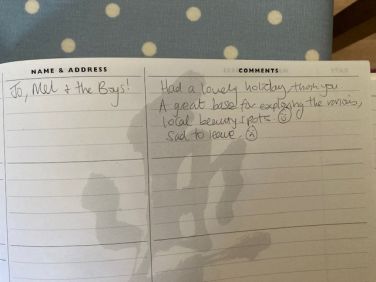 NAME & ADDRESS
COMMENTS
Jo, Mel + the Boys!
Had a lovely holiday, thank you
A great base for exploring the various,
local beauty spots. ☺
Sad to leave. ☹